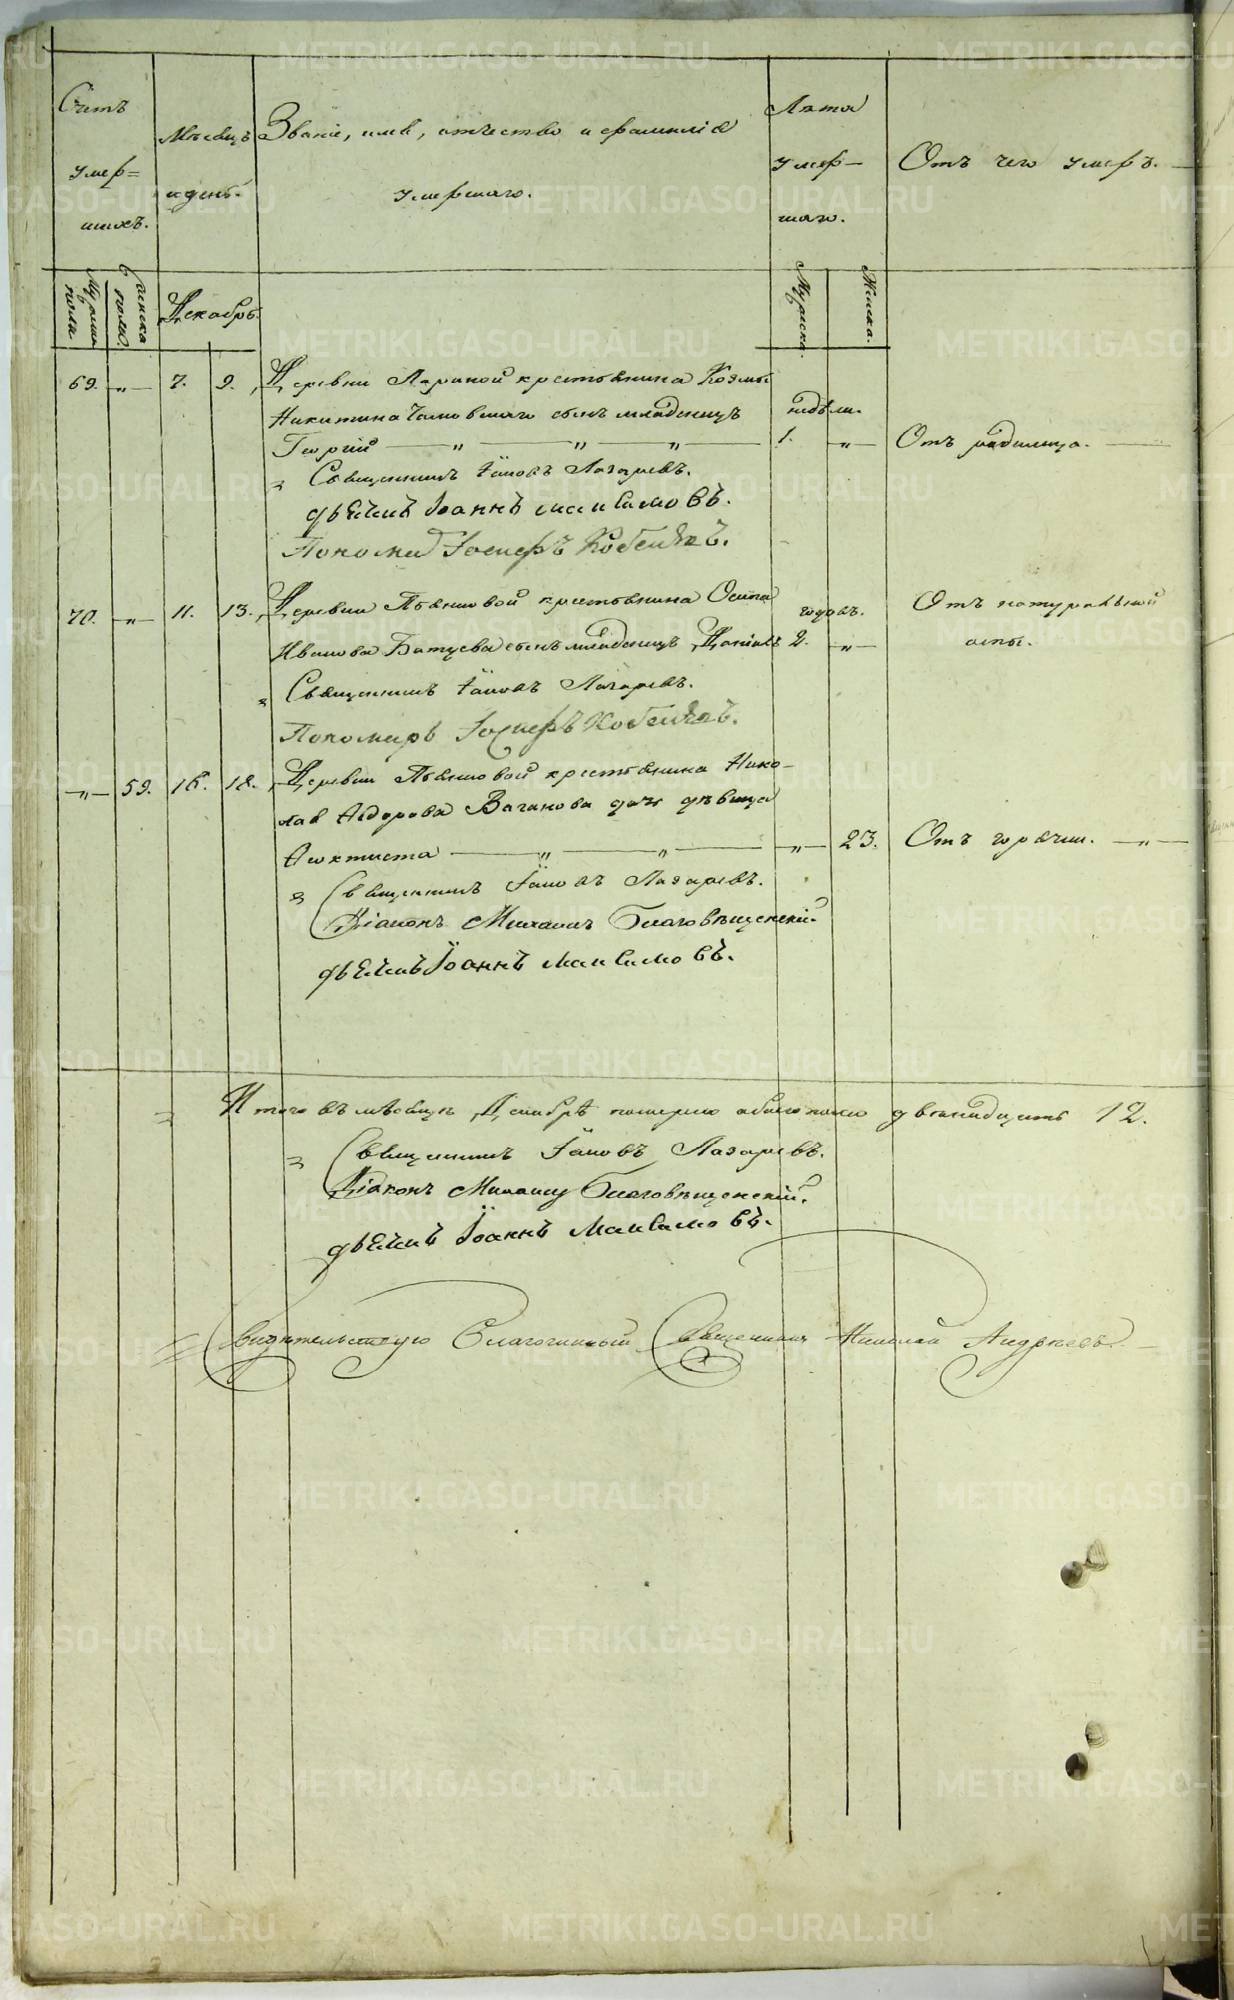 Счетъ
умер=
шихъ.
Мѣсяцъ
и день.
Званіе, имя, отчество и фамилія
умершаго.
Лѣта
умер-
шаго.
Отъ чего умеръ.
Мужска
пола.
Женска
пола.
Декабрь.
Мужска.
Женска.
69. " 7. 9. Деревни Лариной крестьянина Козмы
Никитина сынъ младенецъ недѣли.
Георгій " " " 1. " Отъ родимца.
Священникъ Іаковъ Лазаревъ.
дьячекъ Іоаннъ Максимовъ.
Пономарь Іосифъ
70. " 11. 13. Деревни Пьянковой крестьянина Осипа годовъ. Отъ натуральной
Иванова Батуева сынъ младенецъ Даніилъ 2. " оспы.
Священникъ Іаковъ Лазаревъ.
Пономарь Іосифъ
" 59. 16. 18. Деревни Пьянковой крестьянина Нико-
лая Ѳедорова Ваганова дочь дѣвица
Ѳеоктиста " " " 23. Отъ горячки. "
Священникъ Іаковъ Лазаревъ.
Діаконъ Михаилъ Благовѣщенскій.
дьячекъ Іоаннъ Максимовъ.
Итого въ мѣсяцѣ Декабрѣ померло обоего пола двенадцать 12.
Священникъ Іаковъ Лазаревъ.
Діаконъ Михаилъ Благовѣщенскій.
дьячекъ Іоаннъ Максимовъ.
Свидѣтельствую Благочинный Священникъ Николай Андреевъ.
METRIKI.GASO-URAL.RU